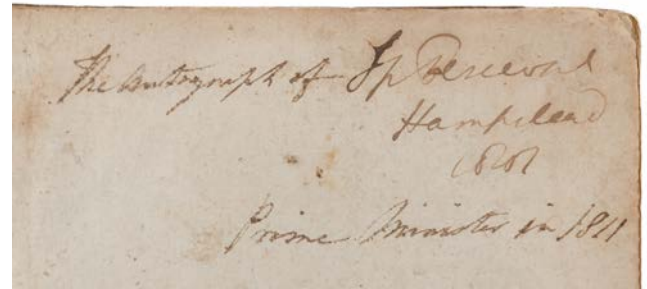 The Autograph of Sp Perceval
Hampstead
1801
Prime Minister in 1811